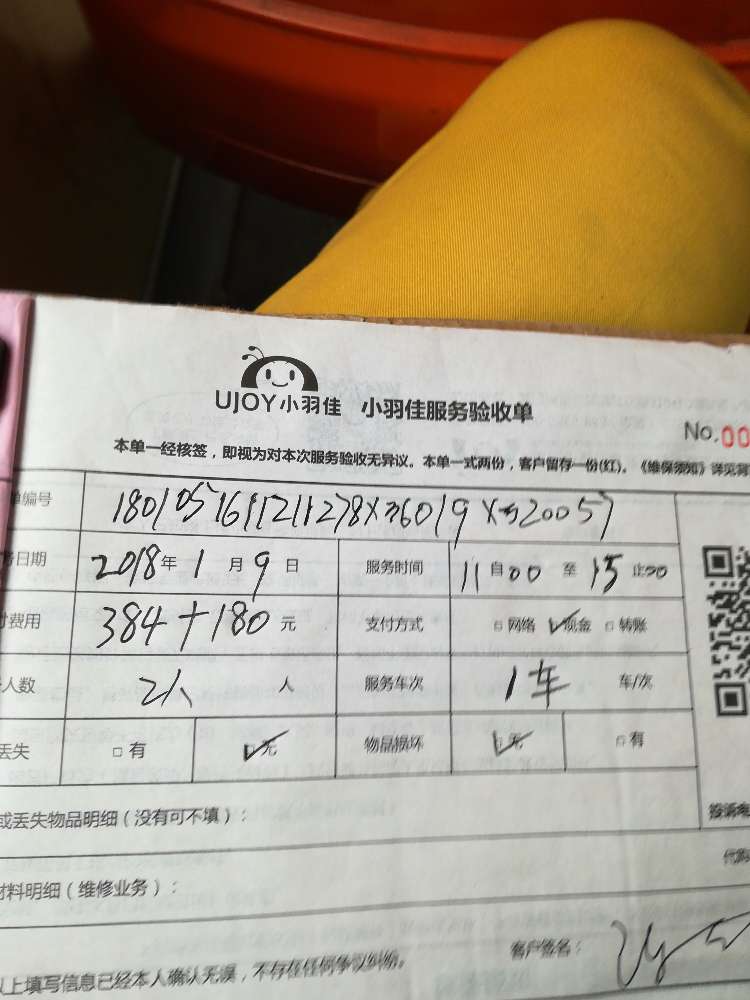 UJOY小羽佳 小羽佳服务验收单
No.00
本单一经核签，即视为对本次服务验收无异议。本单一式两份，客户留存一份(红)。《维保须知》详见背
单编号 1801051611211278X36019X320057
务日期 2018年1月9日 服务时间 11自00至15止00
付费用 384+180元 支付方式 □网络 ☑现金 □转账
人数 2人 人 服务车次 1车 车/次
丢失 □有 ☑无 物品损坏 ☑无 □有
或丢失物品明细（没有可不填）：
投诉电
代购
材料明细（维修业务）：
客户签名：
以上填写信息已经本人确认无误，不存在任何争议纠纷。